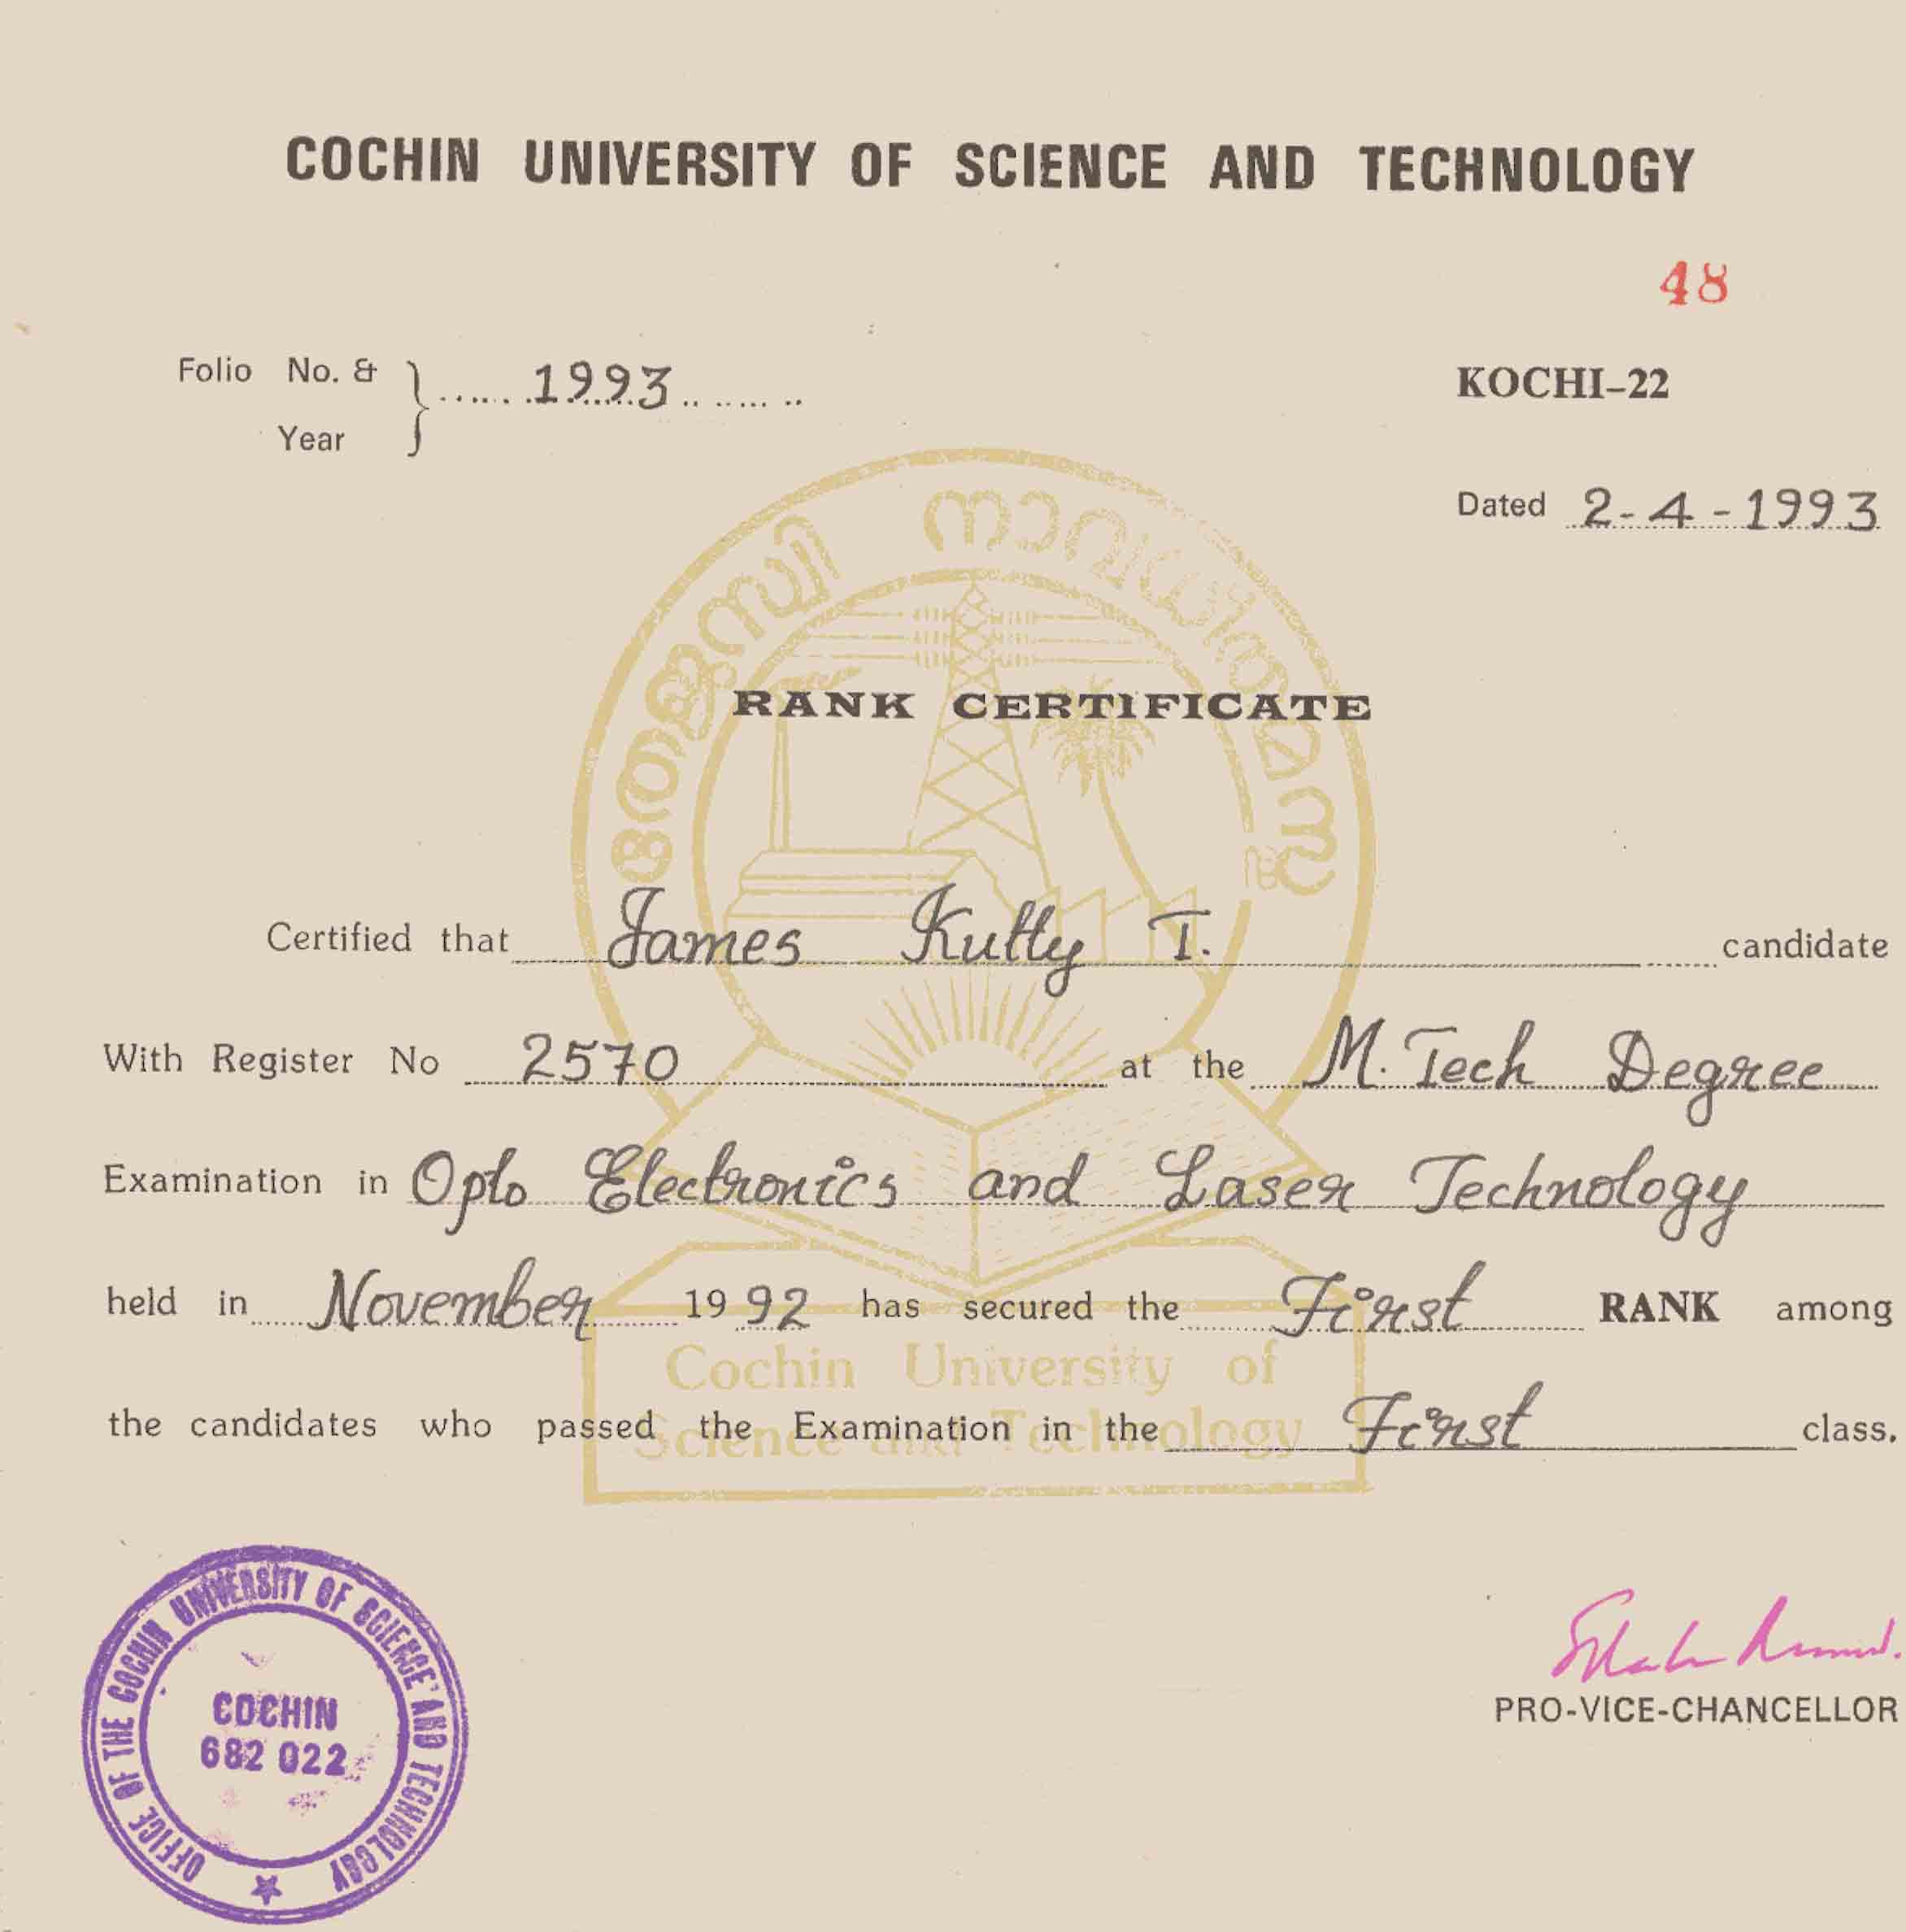 COCHIN UNIVERSITY OF SCIENCE AND TECHNOLOGY
48
Folio No. & Year } 1993
KOCHI-22
Dated 2-4-1993
തേജസ്വി നാവധീതമസ്തു
RANK CERTIFICATE
Certified that James Kutty T. candidate
With Register No 2570 at the M.Tech Degree
Examination in Opto Electronics and Laser Technology
held in November 1992 has secured the First RANK among
Cochin University of
the candidates who passed the Examination in the First class.
Science and Technology
OFFICE OF THE COCHIN UNIVERSITY OF SCIENCE AND TECHNOLOGY
COCHIN
682 022
PRO-VICE-CHANCELLOR